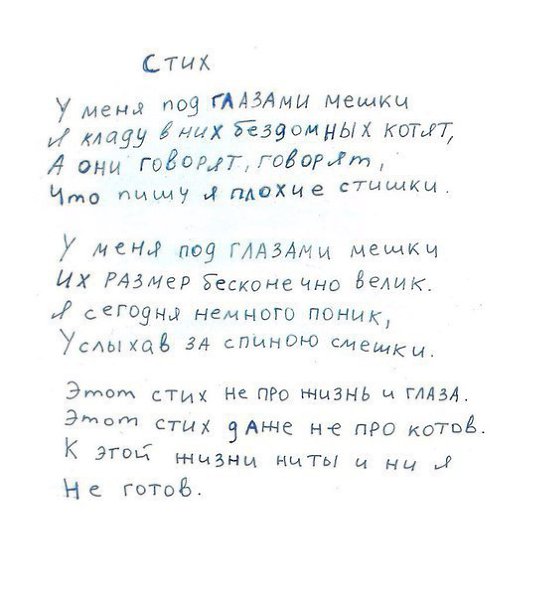 СТИХ
У меня под ГЛАЗАМИ мешки
Я кладу в них бездомных котят,
А они говорят, говорят,
Что пишу я плохие стишки.
У меня под ГЛАЗАМИ мешки
Их РАЗМЕР бесконечно велик.
Я сегодня немного поник,
Услыхав ЗА спиною смешки.
Этот стих не про жизнь и ГЛАЗА.
Этот стих дАже не про котов.
К этой жизни ниты и ни я
Не готов.